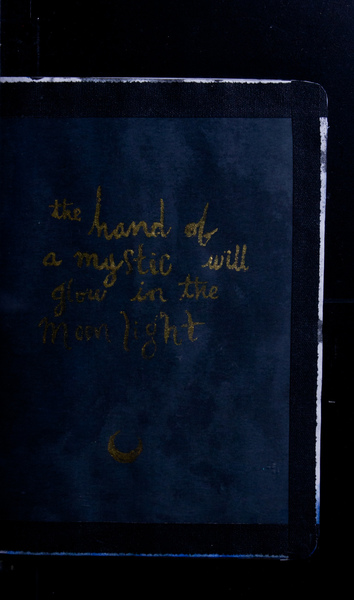 the hand of
a mystic will
glow in the
moon light